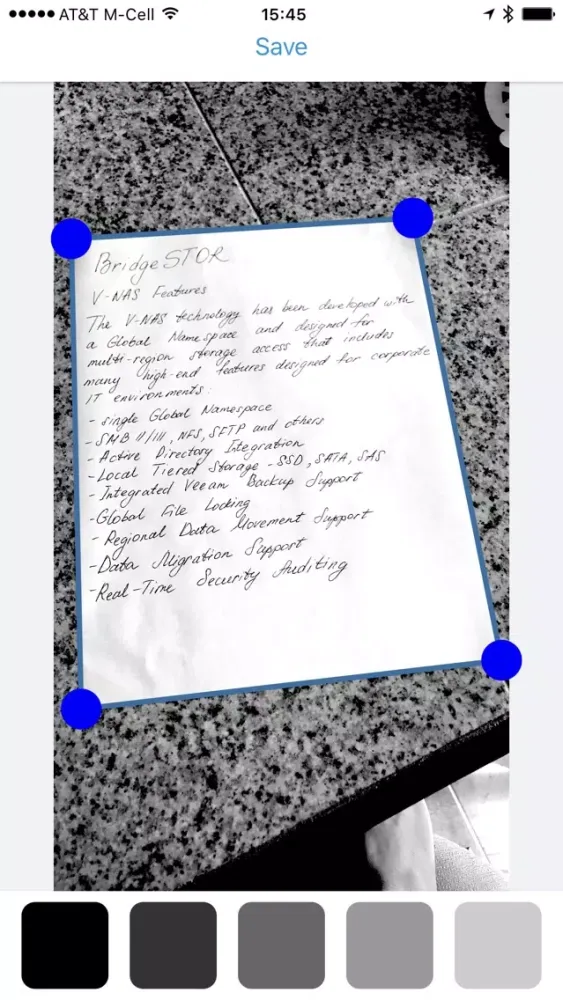 AT&T M-Cell 15:45
Save
BridgeSTOR
V-NAS Features
The V-NAS technology has been developed with
a Global Name space and designed for
multi-region storage access that includes
many high-end features designed for corporate
IT environments:
- single Global Namespace
- SMB II/III, NFS, SFTP and others
- Active Directory Integration
- Local Tiered Storage - SSD, SATA, SAS
- Integrated Veeam Backup Support
- Global File Locking
- Regional Data Movement Support
- Data Migration Support
- Real-Time Security Auditing